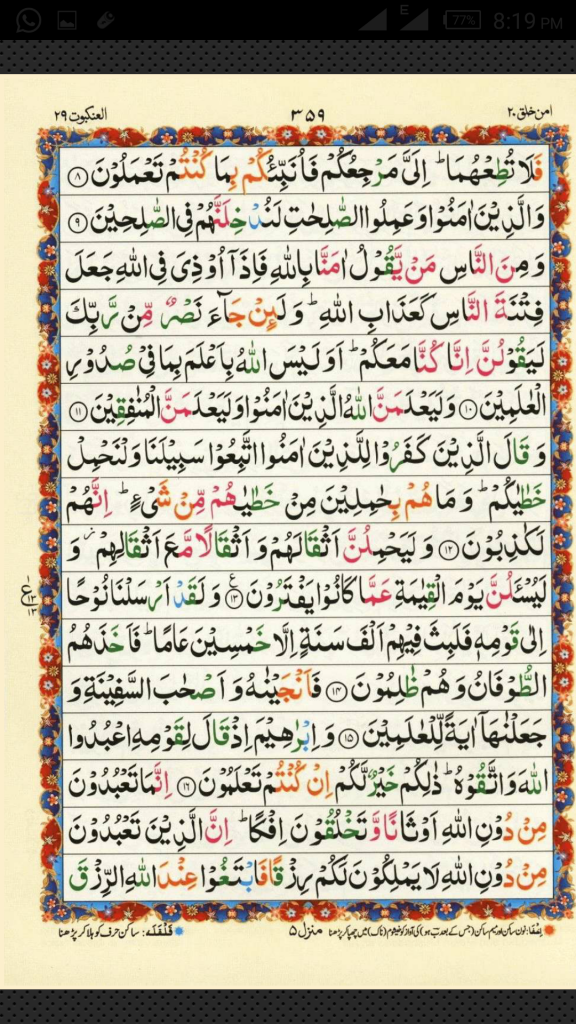 E 77% 8:19 PM
امن خلق ۲۰ ۳۵۹ العنكبوت ۲۹
فَلَا تُطِعْهُمَا ؕ اِلَیَّ مَرْجِعُكُمْ فَاُنَبِّئُكُمْ بِمَا كُنْتُمْ تَعْمَلُوْنَ ۸
وَ الَّذِیْنَ اٰمَنُوْا وَ عَمِلُوا الصّٰلِحٰتِ لَنُدْخِلَنَّهُمْ فِی الصّٰلِحِیْنَ ۹
وَ مِنَ النَّاسِ مَنْ یَّقُوْلُ اٰمَنَّا بِاللّٰهِ فَاِذَاۤ اُوْذِیَ فِی اللّٰهِ جَعَلَ
فِتْنَةَ النَّاسِ كَعَذَابِ اللّٰهِ ؕ وَ لَىِٕنْ جَآءَ نَصْرٌ مِّنْ رَّبِّكَ
لَیَقُوْلُنَّ اِنَّا كُنَّا مَعَكُمْ ؕ اَوَ لَیْسَ اللّٰهُ بِاَعْلَمَ بِمَا فِیْ صُدُوْرِ
الْعٰلَمِیْنَ ۱۰ وَ لَیَعْلَمَنَّ اللّٰهُ الَّذِیْنَ اٰمَنُوْا وَ لَیَعْلَمَنَّ الْمُنٰفِقِیْنَ ۱۱
وَ قَالَ الَّذِیْنَ كَفَرُوْا لِلَّذِیْنَ اٰمَنُوا اتَّبِعُوْا سَبِیْلَنَا وَ لْنَحْمِلْ
خَطٰیٰكُمْ ؕ وَ مَا هُمْ بِحٰمِلِیْنَ مِنْ خَطٰیٰهُمْ مِّنْ شَیْءٍ ؕ اِنَّهُمْ
لَكٰذِبُوْنَ ۱۲ وَ لَیَحْمِلُنَّ اَثْقَالَهُمْ وَ اَثْقَالًا مَّعَ اَثْقَالِهِمْ ؗ وَ
لَیُسْـَٔلُنَّ یَوْمَ الْقِیٰمَةِ عَمَّا كَانُوْا یَفْتَرُوْنَ ۱۳ وَ لَقَدْ اَرْسَلْنَا نُوْحًا
اِلٰی قَوْمِهٖ فَلَبِثَ فِیْهِمْ اَلْفَ سَنَةٍ اِلَّا خَمْسِیْنَ عَامًا ؕ فَاَخَذَهُمُ
الطُّوْفَانُ وَ هُمْ ظٰلِمُوْنَ ۱۴ فَاَنْجَیْنٰهُ وَ اَصْحٰبَ السَّفِیْنَةِ وَ
جَعَلْنٰهَاۤ اٰیَةً لِّلْعٰلَمِیْنَ ۱۵ وَ اِبْرٰهِیْمَ اِذْ قَالَ لِقَوْمِهِ اعْبُدُوا
اللّٰهَ وَ اتَّقُوْهُ ؕ ذٰلِكُمْ خَیْرٌ لَّكُمْ اِنْ كُنْتُمْ تَعْلَمُوْنَ ۱۶ اِنَّمَا تَعْبُدُوْنَ
مِنْ دُوْنِ اللّٰهِ اَوْثَانًا وَّ تَخْلُقُوْنَ اِفْكًا ؕ اِنَّ الَّذِیْنَ تَعْبُدُوْنَ
مِنْ دُوْنِ اللّٰهِ لَا یَمْلِكُوْنَ لَكُمْ رِزْقًا فَابْتَغُوْا عِنْدَ اللّٰهِ الرِّزْقَ
منزل ۵ قلقله: ساکن حرف کو ہلا کر پڑھنا